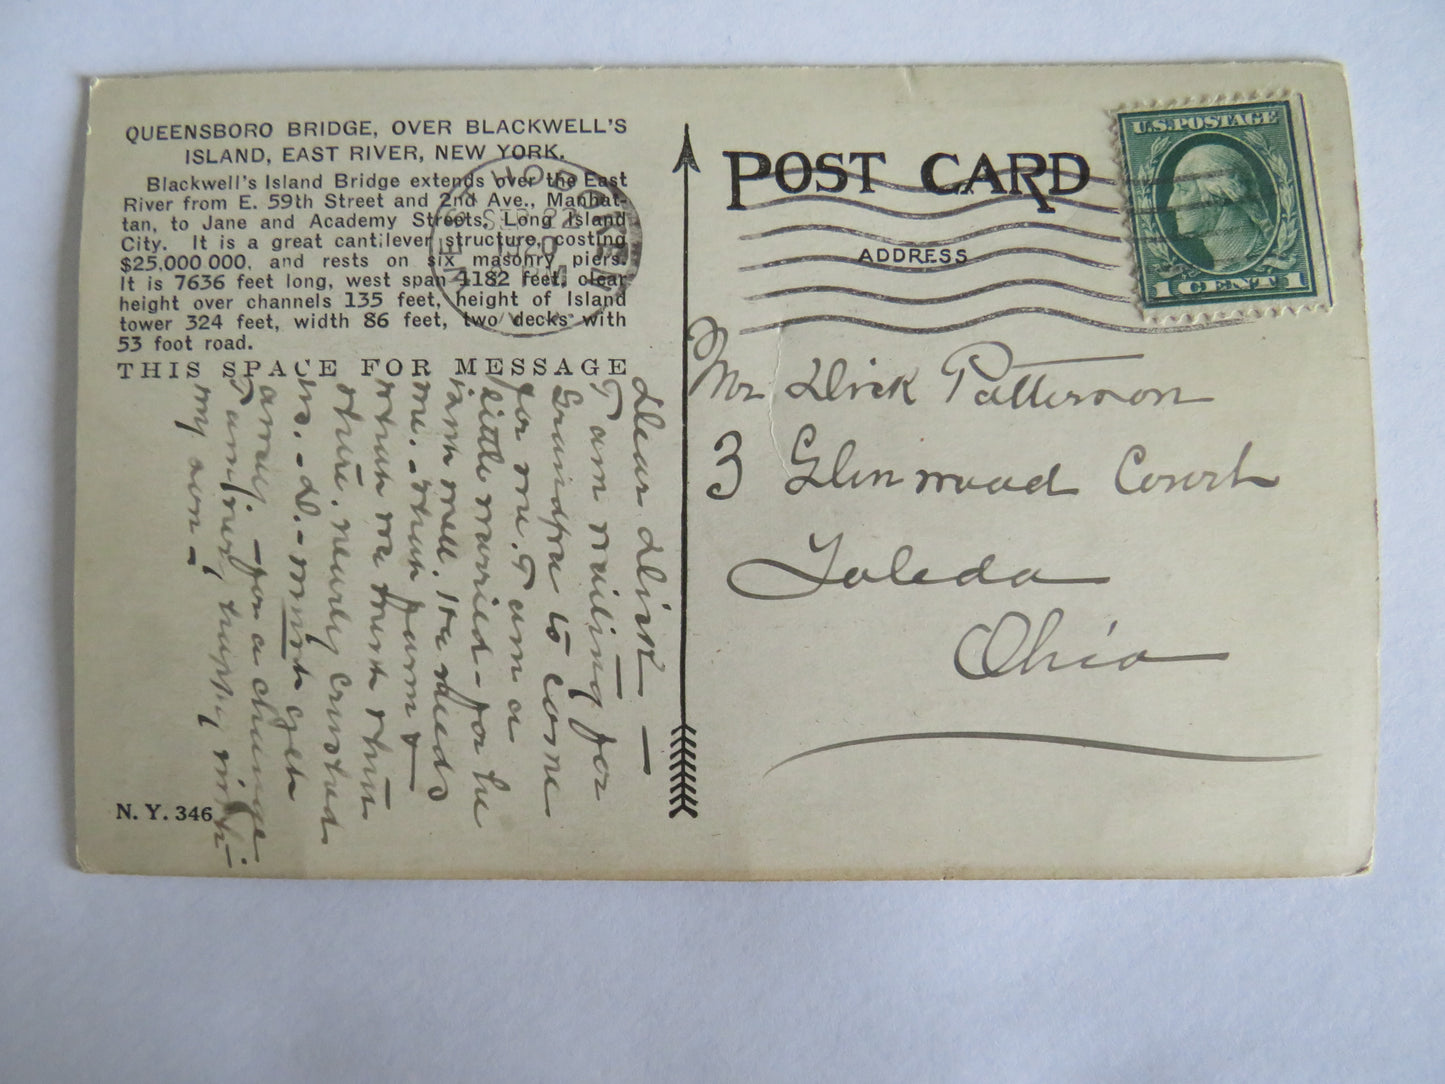 QUEENSBORO BRIDGE, OVER BLACKWELL'S
ISLAND, EAST RIVER, NEW YORK.
Blackwell's Island Bridge extends over the East
River from E. 59th Street and 2nd Ave., Manhat-
tan, to Jane and Academy Streets, Long Island
City. It is a great cantilever structure, costing
$25,000 000, and rests on six masonry piers.
It is 7636 feet long, west span 1182 feet, clear
height over channels 135 feet, height of Island
tower 324 feet, width 86 feet, two decks with
53 foot road.
THIS SPACE FOR MESSAGE
Dear Dick —
I am waiting for
Grandpa to come
for me. I am a
little worried - for he
isnt well. He needs
me. -
nearly
- for a change
I am, very happy with
my son -
N. Y. 346
POST CARD
ADDRESS
U.S. POSTAGE
1 CENT 1
Mr Dick Patterson
3 Glenwood Court
Toledo
Ohio